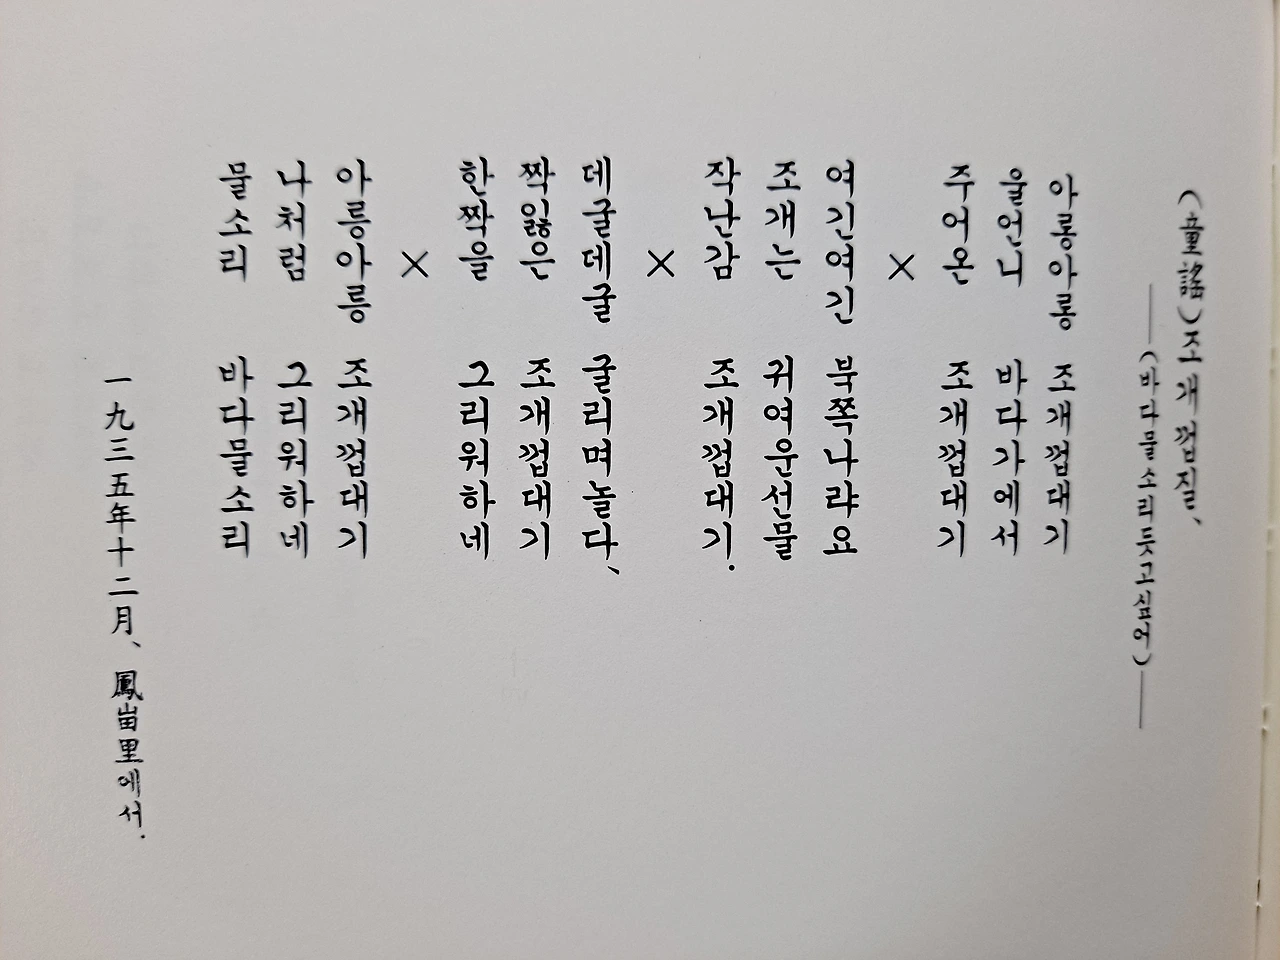 (童謠)조개껍질、
──(바다물소리듯고싶어)──
아롱아롱 조개껍대기
울언니 바다가에서
주어온 조개껍대기
×
여긴여긴 북쪽나라요
조개는 귀여운선물
작난감 조개껍대기.
×
데굴데굴 굴리며놀다、
짝잃은 조개껍대기
한짝을 그리워하네
×
아릉아릉 조개껍대기
나처럼 그리워하네
물소리 바다물소리
一九三五年十二月、鳳峀里에서.